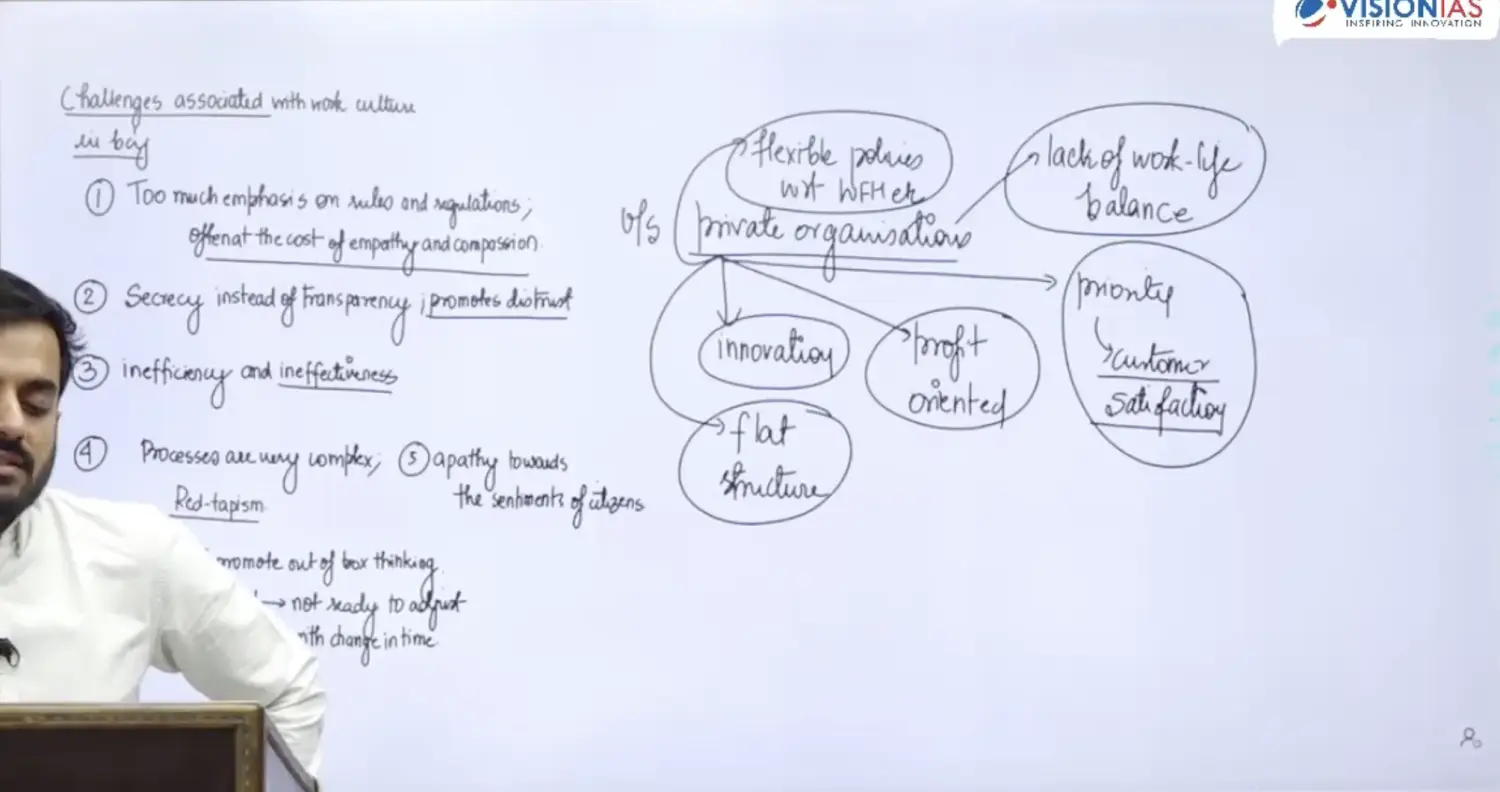 VISIONIAS
INSPIRING INNOVATION
Challenges associated with work culture
in
① Too much emphasis on rules and regulations;
often at the cost of empathy and compassion.
② Secrecy instead of transparency; promotes distrust
③ inefficiency and ineffectiveness
④ Processes are very complex;
Red-tapism
⑤ apathy towards
the sentiments of citizens
promote out of box thinking.
→ not ready to adjust
change in time
v/s
private organisations
flexible policies
wrt WFH etc
lack of work-life
balance
priority
customer
satisfaction
innovation
profit
oriented
flat
structure